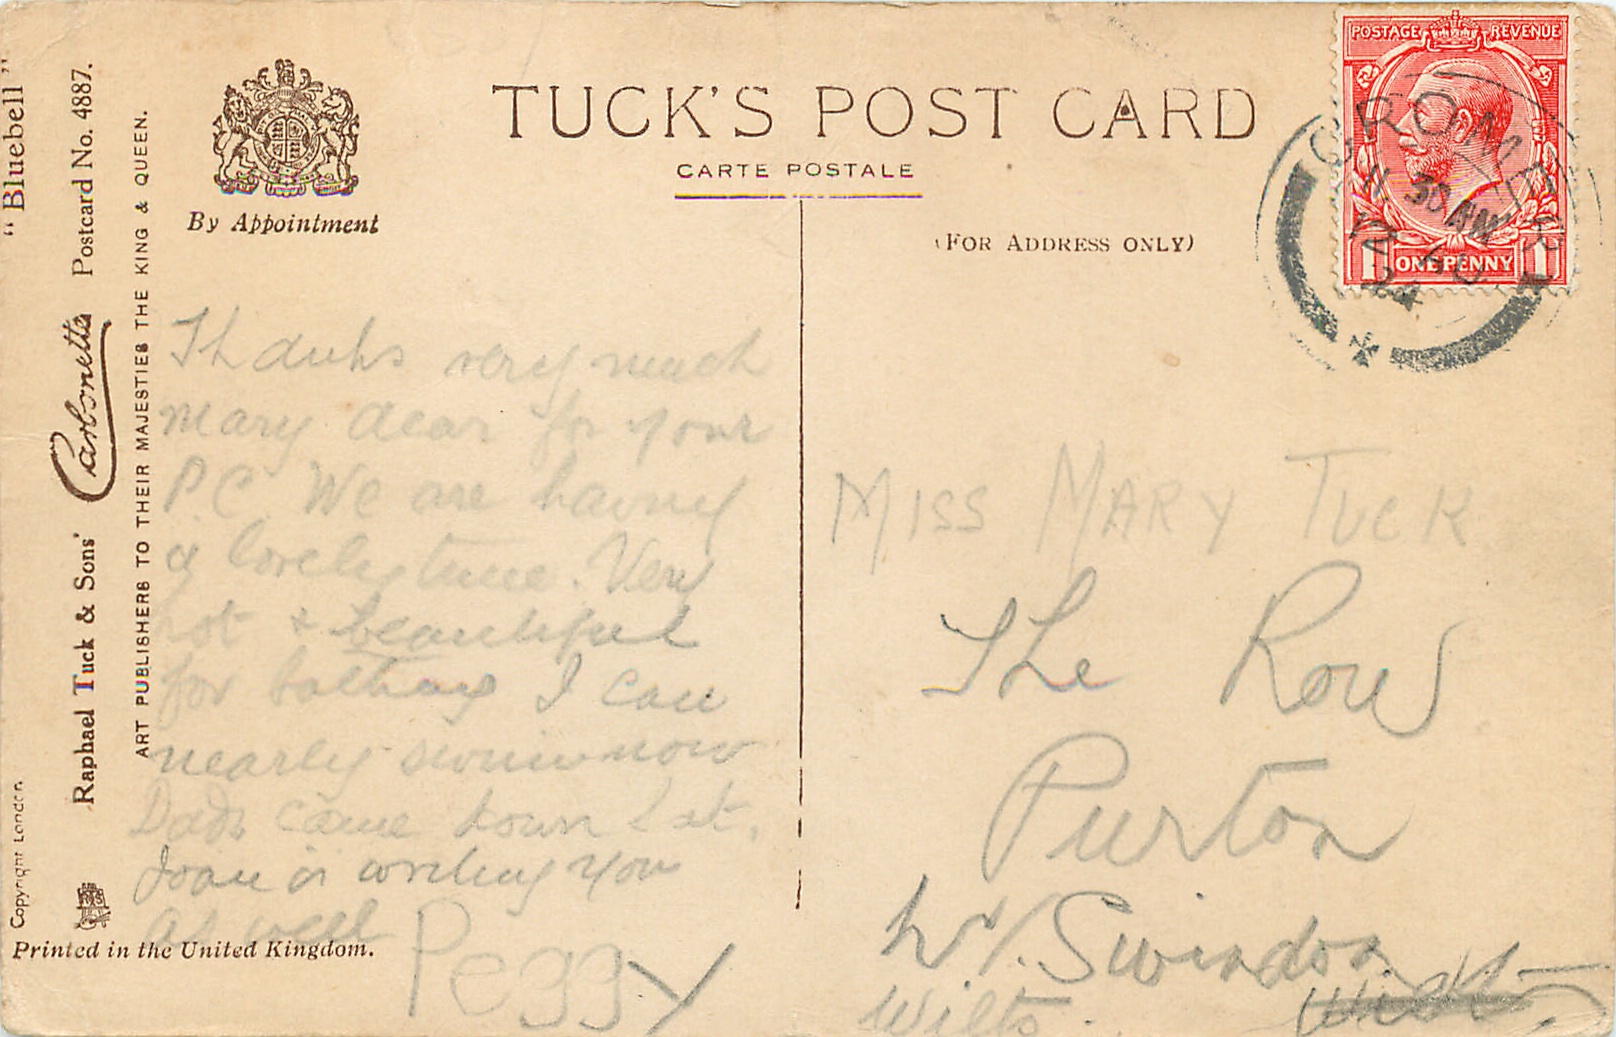 "Bluebell"
Raphael Tuck & Sons' Carbonette Postcard No. 4887.
ART PUBLISHERS TO THEIR MAJESTIES THE KING & QUEEN.
Copyright London.
By Appointment
TUCK'S POST CARD
CARTE POSTALE
(FOR ADDRESS ONLY)
POSTAGE REVENUE
ONE PENNY
1 1
CROMER
11 30 AM
24
Thanks very much
Mary dear for your
P.C. We are having
a lovely time. Very
hot & beautiful
for bathing I can
nearly swim now
Dads came down Sat.
Joan is writing you
as well
Peggy
MISS MARY TUCK
The Row
Purton
Nr. Swindon
Wilts.
Printed in the United Kingdom.